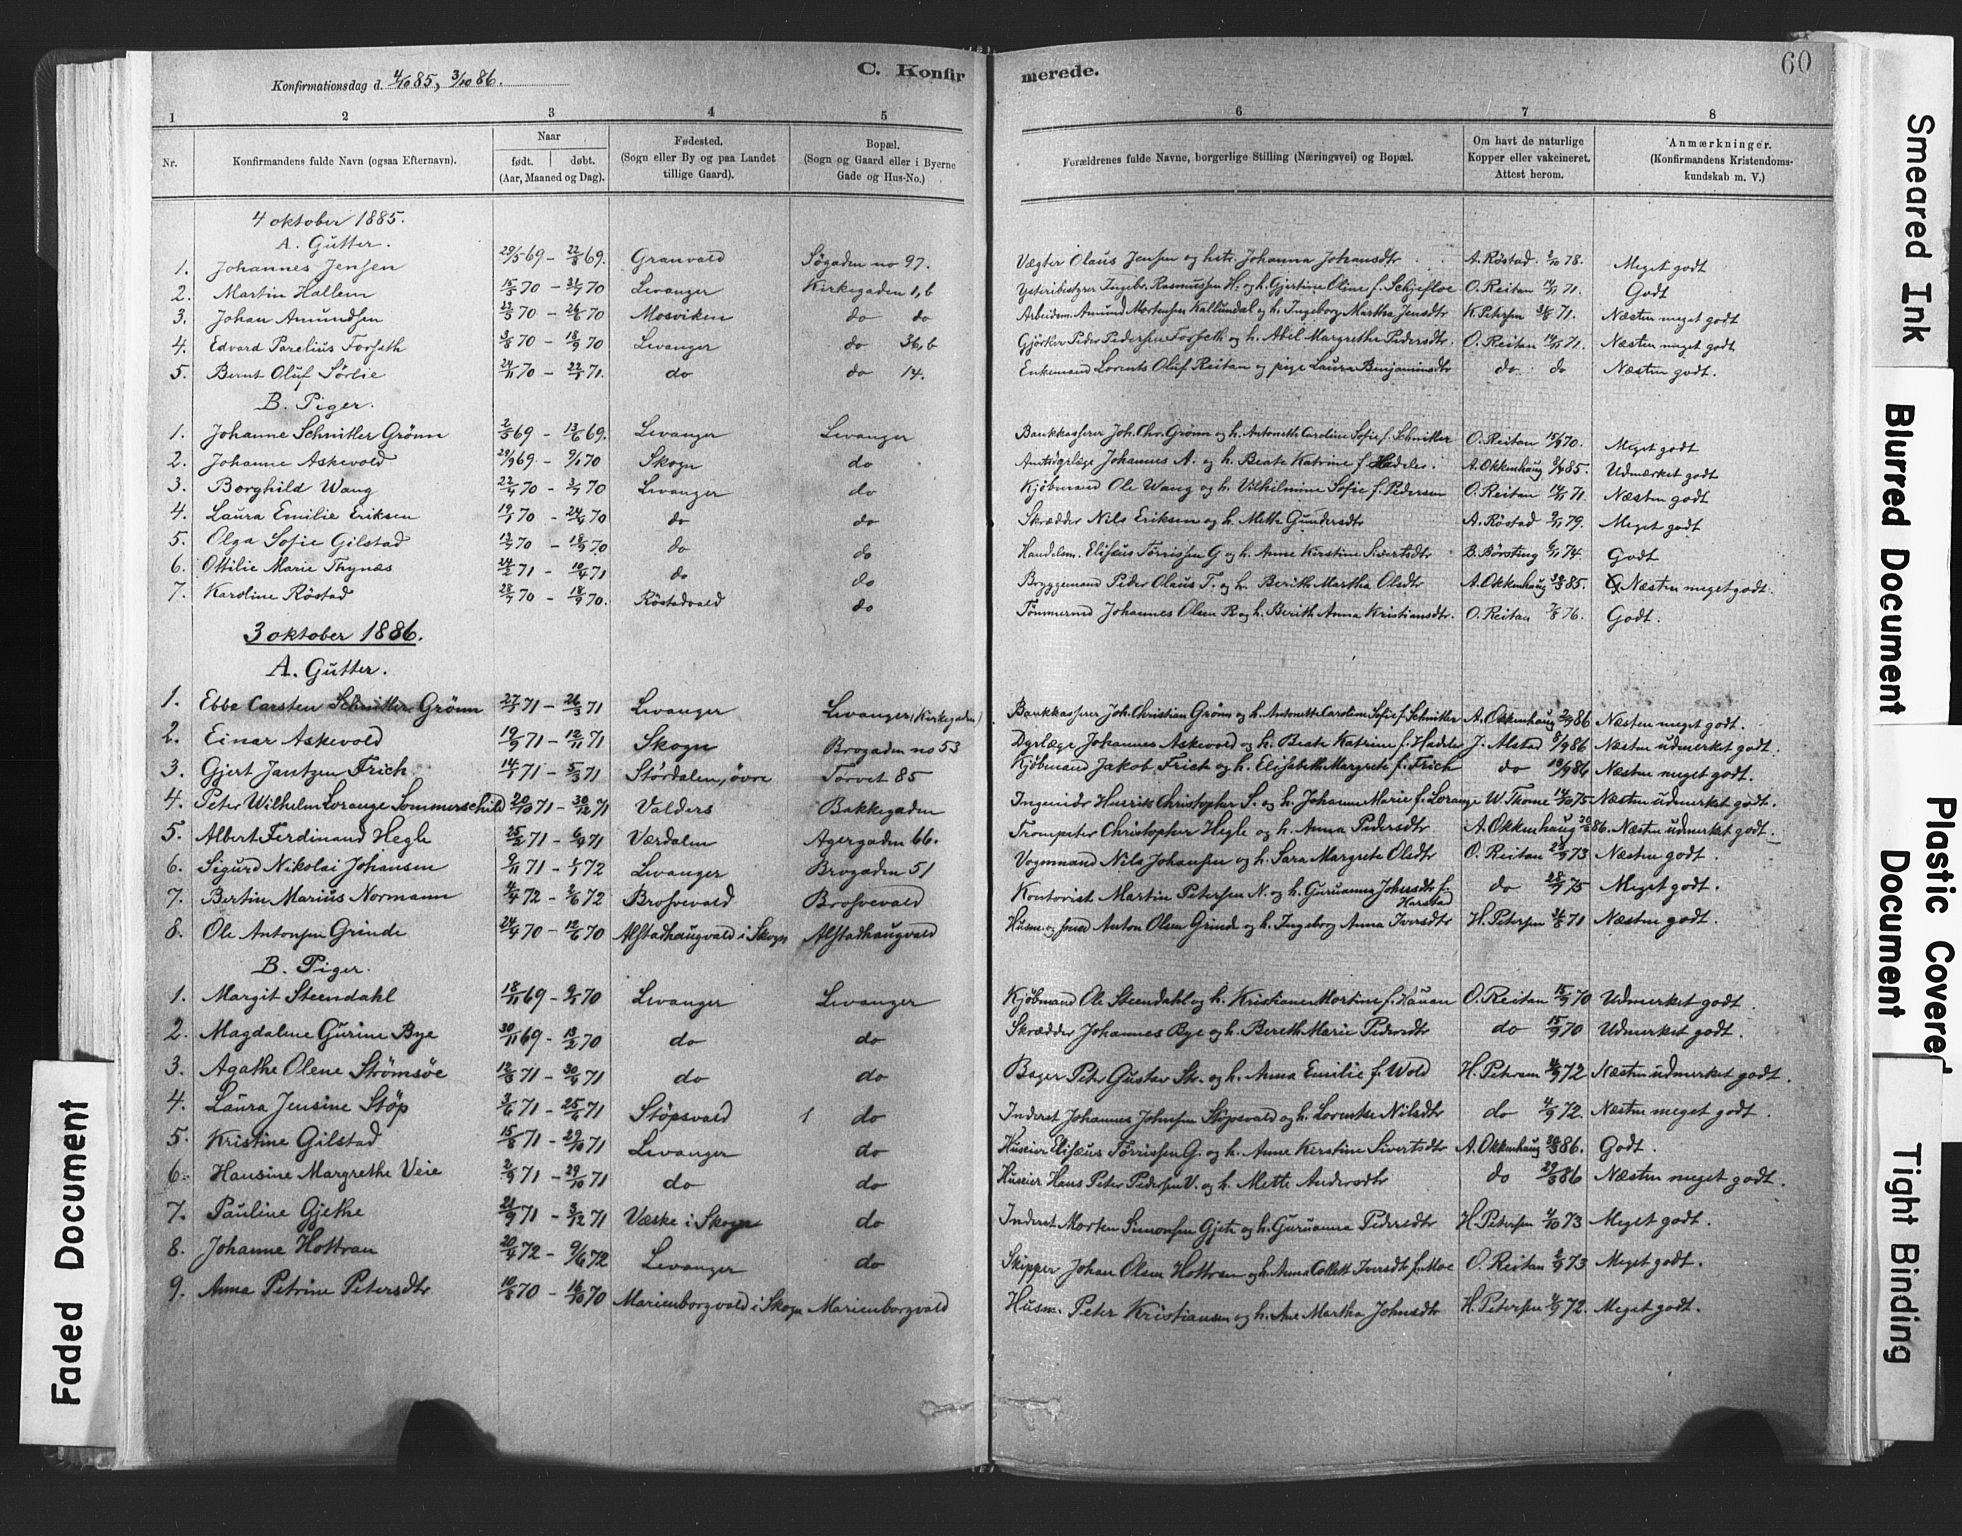 Konfirmationsdag d. 4/10 85, 3/10 86.
C. Konfirmerede.
60
1 2 3 4 5 6 7 8
Nr.
Konfirmandens fulde Navn (ogsaa Efternavn).
Naar
født. | døbt.
(Aar, Maaned og Dag).
Fødested.
(Sogn eller By og paa Landet
tillige Gaard).
Bopæl.
(Sogn og Gaard eller i Byerne
Gade og Hus-No.)
Forældrenes fulde Navne, borgerlige Stilling (Næringsvei) og Bopæl.
Om havt de naturlige
Kopper eller vakcineret.
Attest herom.
Anmærkninger.
(Konfirmandens Kristendoms-
kundskab m. V.)
4 oktober 1885.
A. Gutter.
1. Johannes Jensen 29/5 69 - 69. Granvald Søgaden no 97. Vægter Olaus Jensen og hstr. Johanna Johansdtr A. Röstad 78. Meget godt
2. Martin Hallem 70 - 70 Levanger Kirkegaden 1,b Ysteribestyrer Ingebr. Rasmussen H. og h. Gjertine Oline f. Schjefloe O. Reitan 71. Godt
3. Johan Amundsen 70 - 70 Mosviken do do Arbeidsm. Amund Mortensen Kallundal og h. Ingeborg Martha Jensdtr K. Petersen 71. Næsten meget godt
4. Edvard Parelius Forseth 70 - 18/9 70 Levanger do 36,b Gjörtler Peder Pedersen Forseth og h. Abel Margrethe Pedersdtr. O. Reitan 71. Næsten meget godt
5. Bernt Oluf Sörlie 70 - 71. do do 14. Enkemand Lorents Oluf Reitan og pige Laura Benjaminsdtr do do Næsten godt.
B. Piger.
1. Johanne Schnitler Grönn 69 - 69. Levanger Levanger Bankkasserer Joh. Chr. Grönn og h. Antonette Caroline Sofie f. Schnitler O. Reitan 15/9 70. Meget godt
2. Johanne Askevold 29/9 69 - 9/1 70 Skogn do Amtsdyrlæge Johannes A. og h. Beate Katrine f. Hadeler. A. Okkenhaug 85. Udmærket godt
3. Borghild Wang 22/4 70 - 3/7 70 Levanger do Kjöbmand Ole Wang og h. Vilhelmine Sofie f. Pedersen O. Reitan 71. Næsten godt
4. Laura Emilie Eriksen 70 - 70 do do Skrædder Nils Eriksen og h. Mette Gundersdtr A. Röstad 79. Meget godt
5. Olga Sofie Gilstad 70 - 18/9 70 do do Handelsm. Elisæus Torrissen G og h. Anne Kirstine Sivertsdtr B. Börsting 74. Godt
6. Ottilie Marie Thynæs 71 - 71 do do Bryggemand Peder Olaus T. og h. Berith Martha Olsdtr A. Okkenhaug 85. Næsten meget godt.
7. Karoline Röstad 70 - 18/9 70. Röstadvald do Tömmermd Johannes Olsen R og h. Berith Anna Kristiansdtr. O. Reitan 76. Godt.
3 oktober 1886.
A. Gutter.
1. Ebbe Carsten Schnitler Grönn 71 - 26/3 71 Levanger Levanger (Kirkegaden) Bankkasserer Joh. Christian Grönn og h. Antonette Caroline Sofie f. Schnitler A. Okkenhaug 86 Næsten meget godt.
2. Einar Askevold 19/9 71 - 12/11 71 Skogn Brogaden no 53 Dyrlæge Johannes Askevold og h. Beate Katrine f. Hadeler J. Alstad 8/9 86 Næsten udmerket godt.
3. Gjert Jantzen Frich 14/1 71 - 5/3 71 Stördalen, övre Torvet 85 Kjöbmand Jakob Frich og h. Elisabeth Margrete f. Frich do 86 Næsten meget godt.
4. Peter Wilhelm Lorange Sommerschild 20/10 71 - 30/12 71 Valders Bakkegaden Ingeniör Henrik Christopher S. og h. Johanne Marie f. Lorange W. Thome 75 Næsten udmerket godt.
5. Albert Ferdinand Hegle 71 - 71 Værdalen Agergaden 66. Trompeter Christopher Hegle og h. Anna Pedersdtr A. Okkenhaug 86. Næsten udmerket godt.
6. Sigurd Nikolai Johansen 9/11 71 - 1/1 72 Levanger Brogaden 51 Vognmand Nils Johansen og h. Sara Margrete Olsdtr O. Reitan 73 Næsten godt.
7. Bertin Marius Normann 72 - 72 Brosvevald Brosvevald Kontorist Martin Petersen N. og h. Guruanna Johnsdtr f. Harstad do 75 Meget godt.
8. Ole Antonsen Grinde 24/4 70 - 12/6 70 Alstadhaugvald i Skogn Alstadhaugvald Husm. og smed Anton Olsen Grind og h. Ingeborg Anna Iversdtr H. Petersen 71 Næsten godt.
B. Piger.
1. Margit Steendahl 18/11 69 - 70 Levanger Levanger Kjöbmand Ole Steendahl og h. Kristiane Mortine f. Hauan O. Reitan 15/9 70 Udmerket godt.
2. Magdalene Gurine Bye 30/11 69 - 13/2 70 do do Skrædder Johannes Bye og h. Bereth Marie Pedersdtr do 15/9 70 Udmerket godt.
3. Agathe Olene Strömsöe 71 - 71 do do Bager Petr Gustav Str. og h. Anna Emilie f. Wold H. Petersen 72 Næsten udmerket godt.
4. Laura Jensine Stöp 3/6 71 - 71 Stöpsvald 1 do Inderst Johannes Johnsen Stöpsvald og h. Lorentse Nilsdtr do 4/9 72. Næsten meget godt.
5. Kristine Gilstad 71 - 29/10 71 Levanger do Huseier Elisæus Törrissen G. og h. Anne Kirstine Sivertsdtr A. Okkenhaug 86. Godt.
6. Hansine Margrethe Veie 71 - 29/10 71 do do Huseier Hans Peter Pedersen V. og h. Mette Andersdtr do 86 Næsten meget godt.
7. Pauline Gjethe 21/9 71 - 3/12 71 Væske i Skogn do Inderst Morten Simonsen Gjete og h. Guruanna Pedersdtr H. Petersen 73 Meget godt.
8. Johanne Hottran 20/4 72 - 9/6 72 Levanger do Skipper Johan Olsen Hottran og h. Anna Collett Iversdtr f. Moe O. Reitan 73 Meget godt.
9. Anna Petrine Petersdtr 70 - 16/10 70 Marienborgvald i Skogn Marienborgvald Husm. Peter Kristiansen og h. Ane Martha Johnsdtr H. Petersen 72. Meget godt.
Faded Document
Smeared Ink
Blurred Document
Plastic Covered
Document
Tight Binding